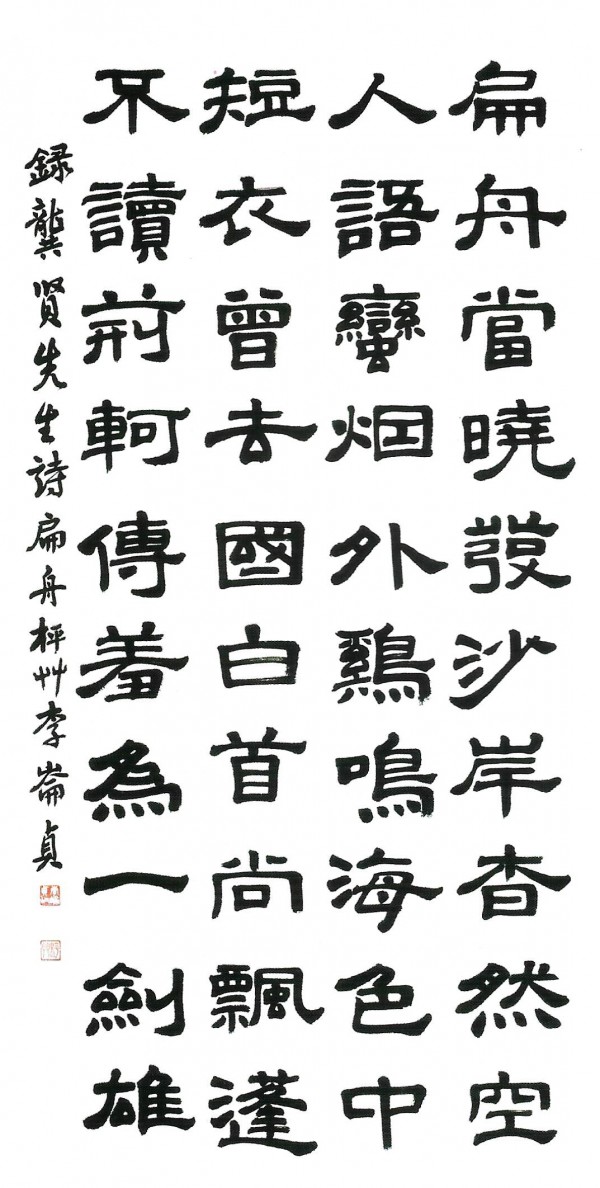 扁舟當曉發沙岸杳然空
人語蠻烟外鷄鳴海色中
短衣曾去國白首尚飄蓬
不讀荊軻傳羞為一劍雄
録龔賢先生詩扁舟枰艸李崙貞